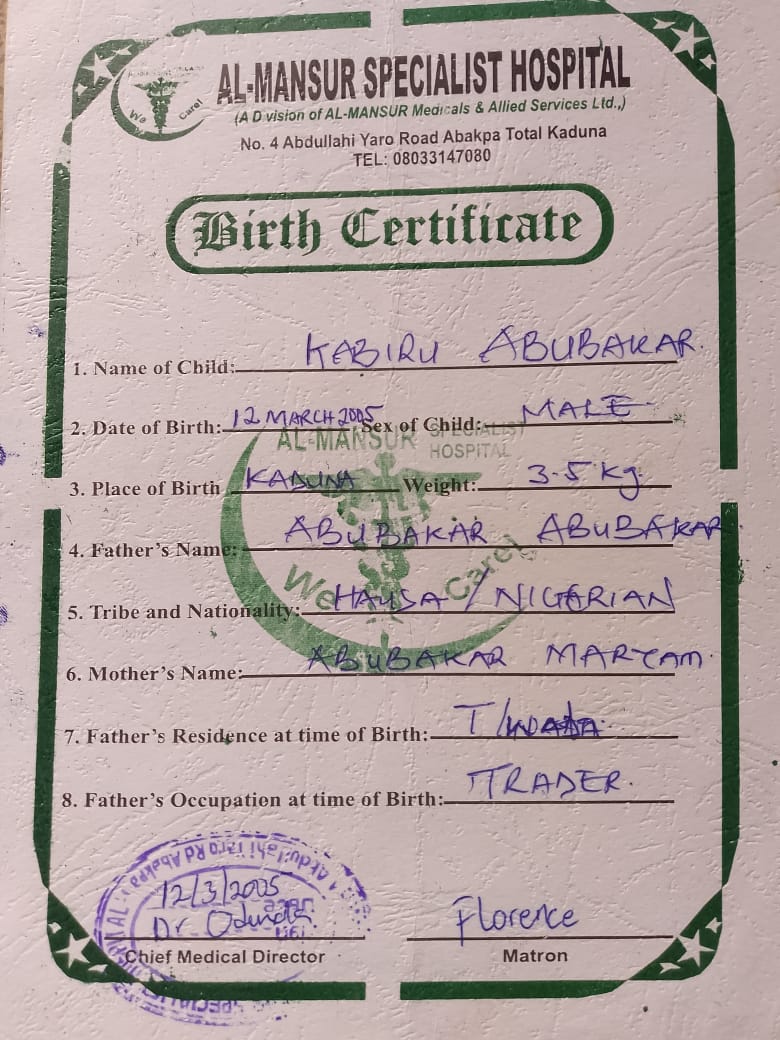 We Care!
AL-MANSUR SPECIALIST HOSPITAL
(A Division of AL-MANSUR Medicals & Allied Services Ltd.,)
No. 4 Abdullahi Yaro Road Abakpa Total Kaduna
TEL: 08033147080
Birth Certificate
1. Name of Child: KABIRU ABUBAKAR.
2. Date of Birth: 12 MARCH 2005 Sex of Child: MALE
AL-MANSUR SPECIALIST
HOSPITAL
3. Place of Birth KADUNA Weight: 3.5 Kg.
4. Father's Name: ABUBAKAR ABUBAKAR
We Care!
5. Tribe and Nationality: HAUSA / NIGERIAN
6. Mother's Name: ABUBAKAR MARYAM.
7. Father's Residence at time of Birth: T/WADA.
8. Father's Occupation at time of Birth: TRADER.
Abdullahi Yaro Rd Abakpa
12/3/2005
Dr. Florence
Chief Medical Director Matron